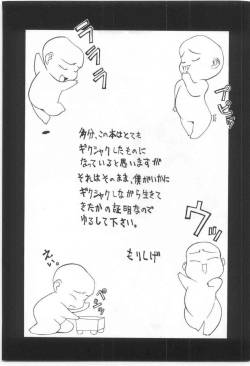 ラララ
プンプン
多分、この本はとても
ギクシャクしたものに
なっていると思いますが
それはそのまま、僕がいかに
ギクシャクしながら生きて
きたかの証明なので
ゆるして下さい。
もりしげ
えい。
ペシッ
ウッ